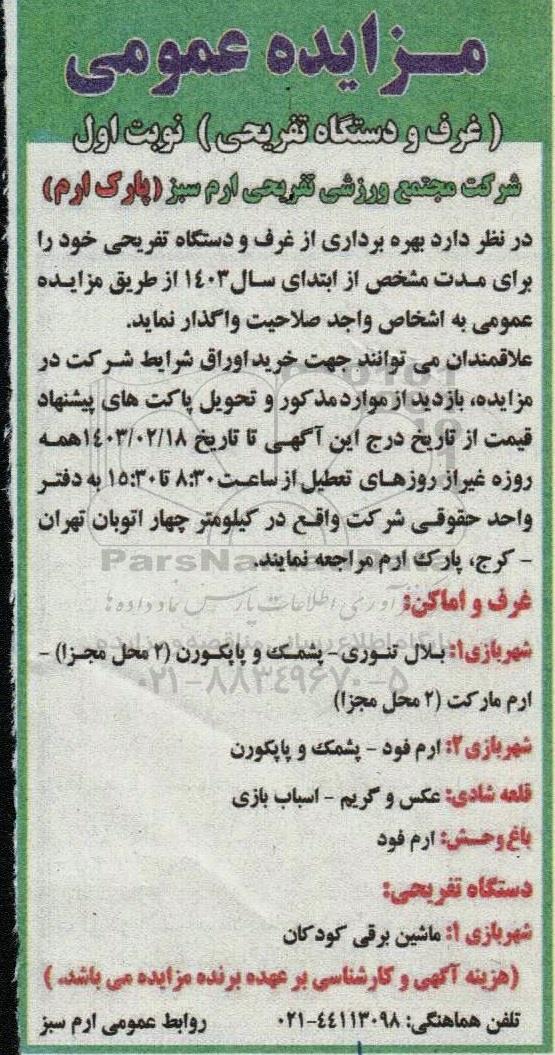 مزایده عمومی
(غرف و دستگاه تفریحی) نوبت اول
شرکت مجتمع ورزشی تفریحی ارم سبز (پارک ارم)
در نظر دارد بهره برداری از غرف و دستگاه تفریحی خود را
برای مدت مشخص از ابتدای سال ۱۴۰۳ از طریق مزایده
عمومی به اشخاص واجد صلاحیت واگذار نماید.
علاقمندان می توانند جهت خرید اوراق شرایط شرکت در
مزایده، بازدید از موارد مذکور و تحویل پاکت های پیشنهاد
قیمت از تاریخ درج این آگهی تا تاریخ ۱۴۰۳/۰۲/۱۸ همه
روزه غیراز روزهای تعطیل از ساعت ۸:۳۰ تا ۱۵:۳۰ به دفتر
واحد حقوقی شرکت واقع در کیلومتر چهار اتوبان تهران
- کرج، پارک ارم مراجعه نمایند.
ParsNamad
غرف و اماکن:
فرآوری اطلاعات پارس نماد داده ها
شهربازی۱: بلال تنوری- پشمک و پاپکورن (۲ محل مجزا) -
پایگاه اطلاع رسانی مناقصه و مزایده
۰۲۱-۸۸۳۴۹۶۷۰-۵
ارم مارکت (۲ محل مجزا)
شهربازی۲: ارم فود - پشمک و پاپکورن
قلعه شادی: عکس و گریم - اسباب بازی
باغ وحش: ارم فود
دستگاه تفریحی:
شهربازی ۱: ماشین برقی کودکان
(هزینه آگهی و کارشناسی بر عهده برنده مزایده می باشد. )
تلفن هماهنگی: ۴۴۱۱۳۰۹۸-۰۲۱ روابط عمومی ارم سبز